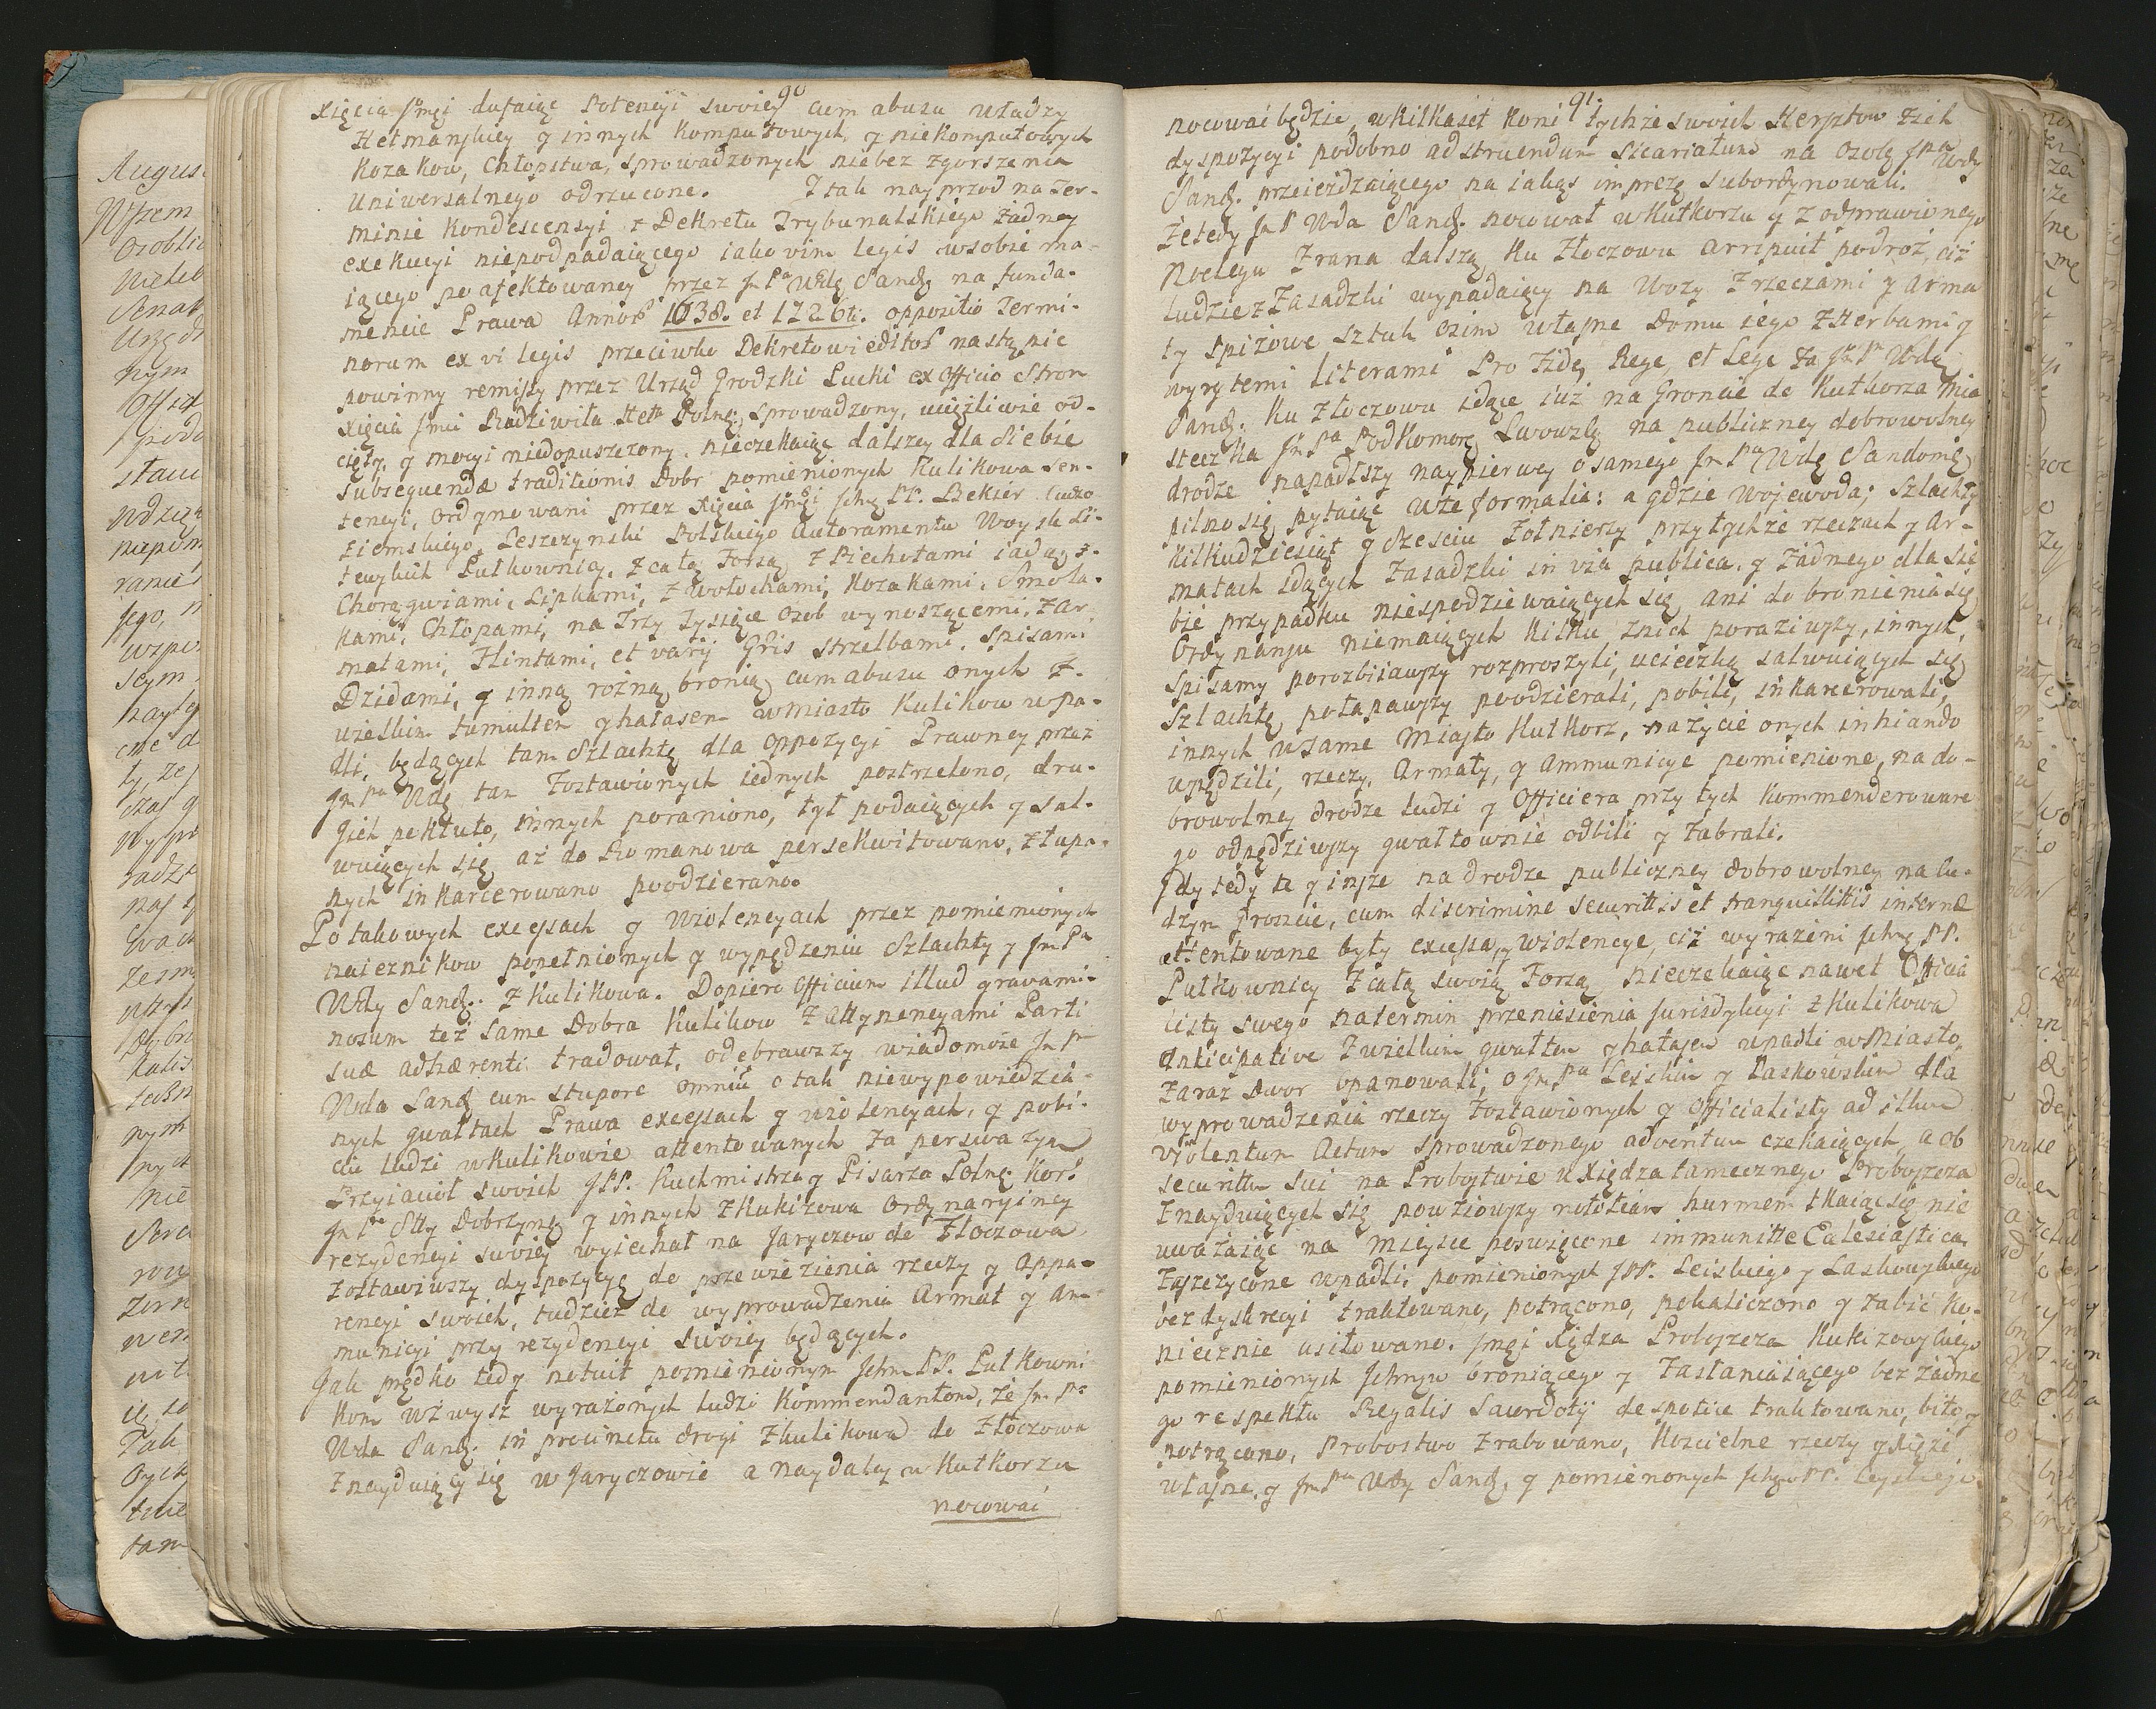 90
Xięcia Jmći dufaiąc Potencyi swoiey cum abusu władzy
Hetmanskiey y innych Komputowych, y niekomputowych
Kozakow, Chłopstwa, sprowadzonych niebez zgorszenia
Uniwersalnego odrzucone. I tak nayprzod na Ter-
minie Kondescensyi z Dekretu Trybunalskiego żadney
exekucyi niepodpadaiącego iako vim legis wsobie ma-
iącego po afektowaney przez Jm Pa Wdę Sand. na funda-
mencie Prawa Annor. 1638. et 1726ti. oppositio Termi-
norum ex vi legis przeciwko Dekretowi editos nastąpic
powinny remissy przez Urząd Grodzki Łucki ex Officio Stron
Xięcia Jmci Radziwiła Het. Polne. sprowadzony, uciążliwie od-
cięty, y mocyi niedopuszczony. nieczekaiąc dalszey dla siebie
subsequendæ traditionis Dobr pomienionych Kulikowa Sen-
tencyi, Ordynowani przez Xięcia Jmći Ichm PP. Bekier Cudzo
ziemskiego, Leszczynski Polskiego Autoramentu Woysk Li-
tewskich Pułkownicy, z całą Forsą, z Piechotami iadąc z
Chorągwiami, Lipkami, z Wołochami, Kozakami, Smola-
kami, Chłopami, na Trzy Tysiące Osob wynoszącemi, z Ar-
matami, Flintami, et varij Gris strzelbami, Spisami
Dzidami, y inną rożną bronią cum abusu onych z
wielkim tumultem y hałasem w miasto Kulikow wpa-
dli, będących tam Szlachtę dla Oppozycyi Prawney przez
Jm Pa Wdę tam Zostawionych iednych postrzelono, dru-
gich pokłuto, innych poraniono, tył podaiących y sal-
wuiących się, aż do Romanowa persekwitowano, złapa-
nych inkarcerowano poodzierano.
Po takowych excessach y Wiolencyach przez pomienionych
naiezdnikow popełnionych y wypędzeniu Szlachty y Jm Pa
Wdy Sand. z Kulikowa. Dopiero Officium illud gravami-
nosum też same Dobra Kulikow z Attynencyami Parti
suæ adhærenti tradował, odebrawszy wiadomosc Jm Pan
Wda Sand cum stupore omniu o tak niewypowiedzia-
nych gwałtach Prawa excessach y wiolencyach, y pobi-
ciu ludzi w Kulikowie attentowanych za perswazyą
Przyiacioł swoich JPP. Kuchmistrza y Pisarza Polne Kor.
Jm Pa Stty Dobrzyn y innych z Kukizowa Ordynaryiney
rezydencyi swoiey wyiechał na Jaryczow do Złoczowa,
zostawiwszy dyspozycyę do przewiezienia rzeczy y appa-
rencyi swoich, tudzież do wyprowadzenia Armat y am-
municyi przy rezydencyi swoiey będących.
Jak prędko tedy notuit pomienionym Ichm PP. Pułkowni-
kom wzwysz wyrażonych ludzi Kommendantom, że Jm Pan
Wda Sand. in procinctu drogi z Kulikowa do Złoczowa
znayduiący się w Jaryczowie a naydaley w Kutkorzu
nocowac
91.
nocować będzie, w kilkaset koni tychże swoich Herztow z ich
dyspozycyi podobno ad struendum sicariatum na Osobę Jm Pa Wdy
Sand. przeieżdzaiącego na iakąs imprezę subordynowali.
Że tedy Jm P Wda Sand. nocował w Kutkorzu y z odprawionego
Noclegu z rana dalszą ku Złoczowu arripuit podroż, ciż
ludzie z zasadzki wypadaiący na Wozy z rzeczami y Arma
ty Spiżowe sztuk ozim własne Domu iego z Herbami y
wyrytemi literami Pro Fide, Rege, et Lege za Jm P Wdą
Sand. Ku Złoczowu idące iuż na Gruncie do Kutkorza Mia
steczka Jm Pa Podkomorz Lwowsk na publiczney dobrowolney
drodze napadłszy naypierwey o samego Jm Pa Wdę Sandomir
pilno się pytaiąc uże formalia: a gdzie Wojewoda; Szlachty
kilkudziesiąt y sześciu Żołnierzy przy tychże rzeczach y Ar-
matach idących zasadzki in via publica, y żadnego dla sie
bie przypadku niespodziewaiących się, ani do bronienia się
Ordynansu niemaiących kilku znich poraziwszy, innych,
Spisamy porozbiiawszy rozproszyli, ucieczką salwuiących się
Szlachtę połapawszy poodzierali, pobili, inkarcerowali,
innych w same Miasto Kutkorz, na życie onych inhiando
wpędzili, rzeczy, Armaty, y Ammunicye pomienione, na do-
browolney drodze ludzi y Officiera przy tych kommenderowane
go odpędziwszy gwałtownie odbili y zabrali.
Gdy tedy te y insze na drodze publiczney dobrowolney na cu-
dzym Groncie, cum discrimine securittis et tranquillittis internæ
attentowane były excessa, y wiolencye, ciż wyrażeni Ichm PP.
Pułkownicy z całą swoią Forsą, nieczekaiąc nawet Officia
listy swego na termin przeniesienia Jurisdykcyi z Kulikowa
Anticipative z wielkim gwałtem y hałasem wpadli w Miasto,
zaraz Dwor opanowali, o Jm Pa Leiskim y Laskowskim dla
wyprowadzenia rzeczy zostawionych y Officialisty ad illum
violentum Actum sprowadzonego adventum czekaiących, a ob
securittm sui na Probostwie u Xiędza tamecznego Proboszcza
Znayduiących się, powziowszy notitiam hurmem tkaiąc się nie
uważaiąc na mieysce poswięcone immunitte Ecclesiastica
zaszczycone wpadli, pomienionych JPP. Leiskiego y Laskowskiego
bez dyskrecyi traktowano, potrącono, pokaliczono y zabić ko-
niecznie usiłowano. Jmći Xiędza Proboszcza Kukizowskiego
pomienionych Ichmciow broniącego y zastaniaiącego bez żadne
go respektu Regalis Sacerdotij despotice traktowano, bito y
potrącano, Probostwo zrabowano, Koscielne rzeczy y Xięże
własne, y Jm Pa Wdy Sand, y pomienonych Ichm PP. Leyskiego